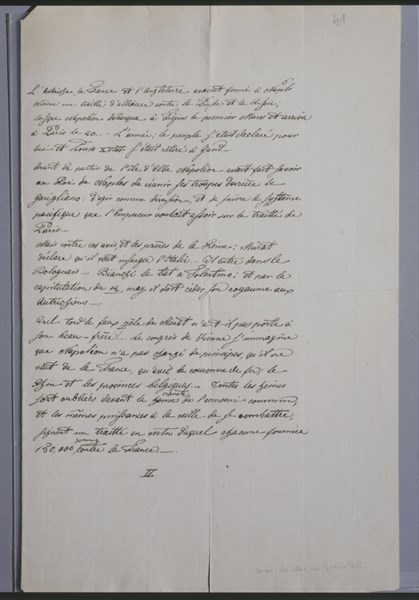 41
L'Autriche, la France et l'Angleterre avaient formé à
un traité d'alliance contre la et la
Napoléon débarque à le premier Mars et arrive
à Paris le 20. – L'armée, le peuple s'était déclaré pour
lui et Louis XVIII s'était retiré à Gand.
Avant de partir de l'île d'Elbe Napoléon avait fait savoir
au Roi de Naples de réunir ses troupes derrière le
garigliano; d'agir comme , et de suivre le système
pacifique que l'Empereur voulait asseoir sur le traité de
Paris. –
Mais contre ces avis et les de la Reine; Murat
déclare qu'il veut insurger l'Italie. – Il entre dans le
Bolognais – Bianchi le bat à Tolentino; et par la
capitulation du 20 may il doit céder son royaume aux
Autrichiens –
Quel tord le faux zèle de Murat n'a-t-il pas porté à
son beau-frère. Le congrès de Vienne s'immagine
que Napoléon n'a pas changé de principes, qu'il ne
veut de la France, qu'avec la couronne de fer, le
Rhin et les provinces belgiques. – Toutes les haines
sont oubliées devant la crainte de l'ennemi commun,
et les mêmes puissances à la veille de se combattre,
signent un traité en vertu duquel chacune fournira
150,000 hommes contre la France. –
II